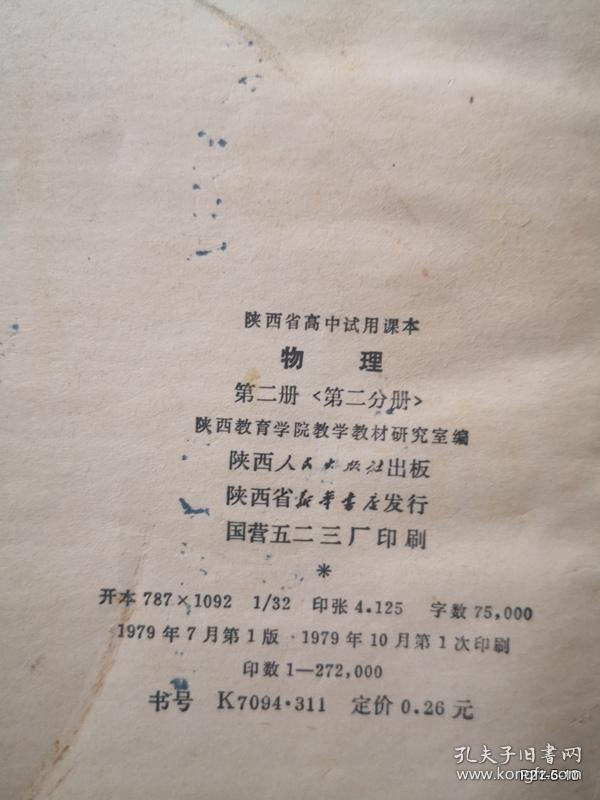 陕西省高中试用课本
物 理
第二册〈第二分册〉
陕西教育学院教学教材研究室编
陕西人民出版社出版
陕西省新华书店发行
国营五二三厂印刷
*
开本 787×1092 1/32 印张 4.125 字数 75,000
1979 年 7 月第 1 版 · 1979 年 10 月第 1 次印刷
印数 1—272,000
书号 K7094·311 定价 0.26 元
孔夫子旧书网
www.kongfz.com